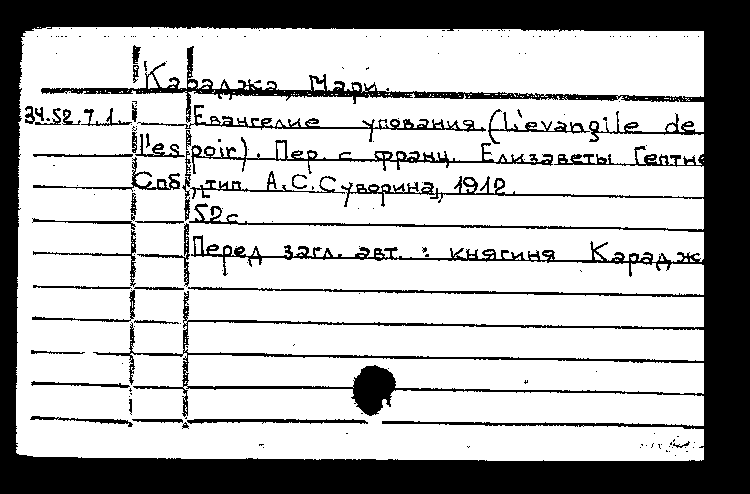 Караджа, Мари.
34.52.7.1. Евангелие упования. (L'evangile de
l'espoir). Пер. с франц. Елизаветы Гептне
Спб., тип. А.С.Суворина, 1912.
52с.
Перед загл. авт. : княгиня Карадж